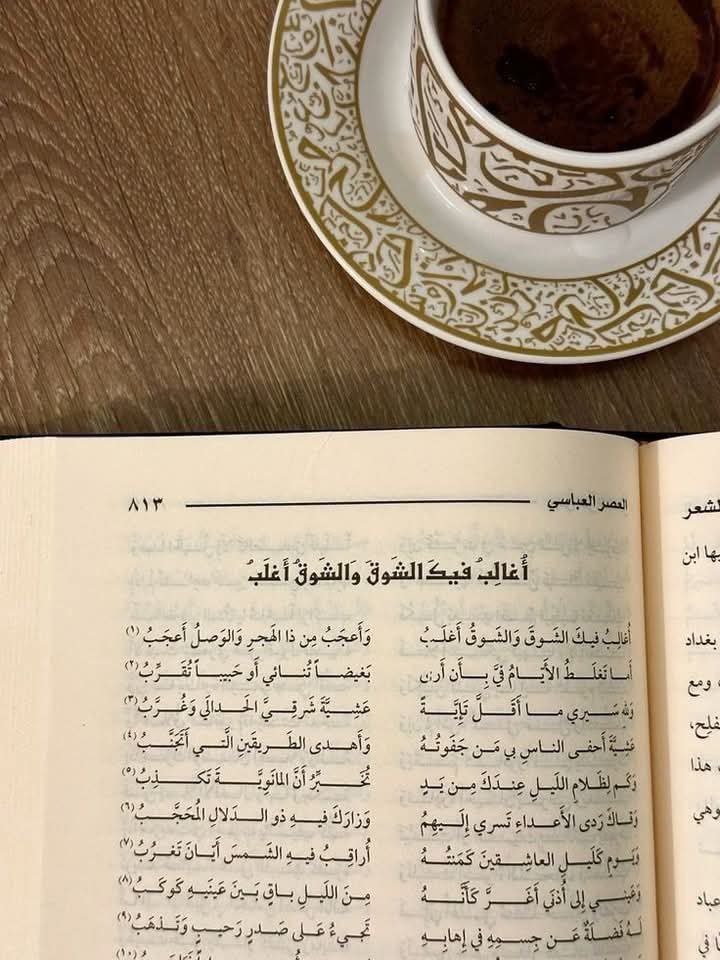 العصر العباسي ٨١٣
أُغالِبُ فيكَ الشَوقَ وَالشَوقُ أَغلَبُ
أُغالِبُ فيكَ الشَوقَ وَالشَوقُ أَغلَبُ وَأَعجَبُ مِن ذا الهَجرِ وَالوَصلُ أَعجَبُ (١)
أَما تَغلَطُ الأَيّامُ فيَّ بِأَن أَرى بَغيضاً تُنائي أَو حَبيباً تُقَرِّبُ (٢)
وَلِلهِ سَيري ما أَقَلَّ تَإِيَّةً عَشِيَّةَ شَرقِيَّ الحَدالَي وَغُرَّبُ (٣)
عَشِيَّةَ أَحفى الناسِ بي مَن جَفَوتُهُ وَأَهدى الطَريقَينِ الَّتي أَتَجَنَّبُ (٤)
وَكَم لِظَلامِ اللَيلِ عِندَكَ مِن يَدٍ تُخَبِّرُ أَنَّ المانَوِيَّةَ تَكذِبُ (٥)
وَقاكَ رَدى الأَعداءِ تَسري إِلَيهِمُ وَزارَكَ فيهِ ذو الدَلالِ المُحَجَّبُ (٦)
وَيَومٍ كَلَيلِ العاشِقينَ كَمَنتُهُ أُراقِبُ فيهِ الشَمسَ أَيّانَ تَغرُبُ (٧)
وَعَيني إِلى أُذنَي أَغَرَّ كَأَنَّهُ مِنَ اللَيلِ باقٍ بَينَ عَينَيهِ كَوكَبُ (٨)
لَهُ فَضلَةٌ عَن جِسمِهِ في إِهابِهِ تَجيءُ عَلى صَدرٍ رَحيبٍ وَتَذهَبُ (٩)
(١٠)
الشعر
ابن
بغداد
ومع
هذا
وهي
عباد
في